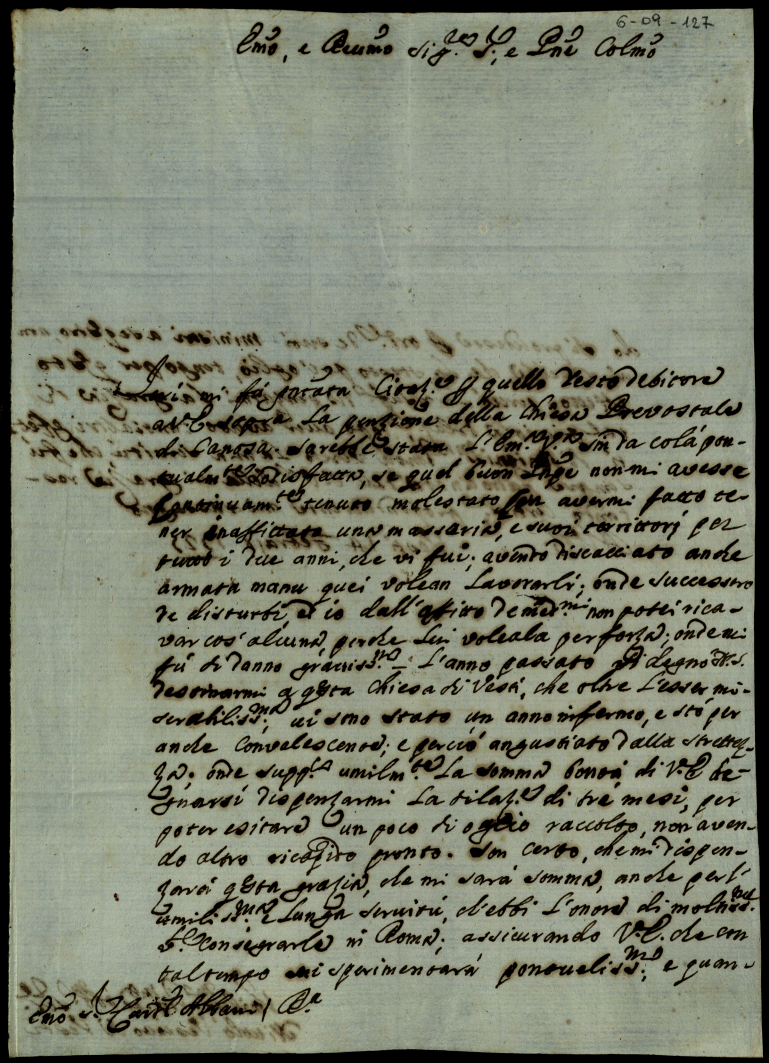 6-09-127
Emo, e Rmo Sig.re S., e Pne Colmo
mi fà portata Citaz.e p quello resto debitore
a V.E. sopra La penzione della Chiesa Prevostale
di Canosa. Sarebbe stata L'Em. V.ra sin da colà pon-
tualm.te sodisfatta, se quel buon Pnpe non mi avesse
continuam.te tenuto molestato con avermi fatto te-
ner inaffittata una massaria, e suoi territorj per
tutto i due anni, che vi fui; avendo discacciato anche
armata manu quei volean Lavorarli; onde successero
de disturbi, ed io dall'affitto de med.mi non potei rica-
var cos' alcuna, perche Lui voleala per forza; onde mi
fù di danno graviss.mo. L'anno passato si degnò N.S.
destinarmi a q̃sta Chiesa di Vesti, che oltre L'esser mi-
serabiliss.ma, vi sono stato un anno infermo, e stò per
anche Convalescente; e perciò angustiato dalla strettez-
za. onde supp.co umilm.te La somma bontà di V.E. de-
gnarsi dispenzarmi La dilaz.e di trè mesi, per
poter esitare un poco di oglio raccolto, non aven-
do altro ricapito pronto. Son certo, che mi dispen-
zarà q̃sta grazia, che mi sarà somma, anche per l'
umiliss.ma e Lunga servitù, ch'ebbi L'onore di moltiss.
consegrarle in Roma; assicurando V.E. che con
tal tempo mi sperimentarà pontualiss.mo, e quan-
Emo S. Card.l Albani Ra